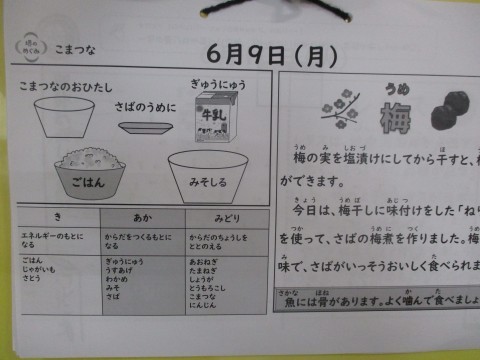 畑のめぐみ
こまつな
6月9日(月)
こまつなのおひたし
さばのうめに
ぎゅうにゅう
牛乳
ごはん
みそしる
き
あか
みどり
エネルギーのもとに
なる
からだをつくるもとに
なる
からだのちょうしを
ととのえる
ごはん
じゃがいも
さとう
ぎゅうにゅう
うすあげ
わかめ
みそ
さば
あおねぎ
たまねぎ
しょうが
とうもろこし
こまつな
にんじん
うめ
梅
うめ み しおづ ほ
梅の実を塩漬けにしてから干すと、
ができます。
きょう うめぼ あじつ
今日は、梅干しに味付けをした「ね
つか うめに つく
を使って、さばの梅煮を作りました。梅
み た
味で、さばがいっそうおいしく食べられま
さかな ほね か た
魚には骨があります。よく噛んで食べましょ